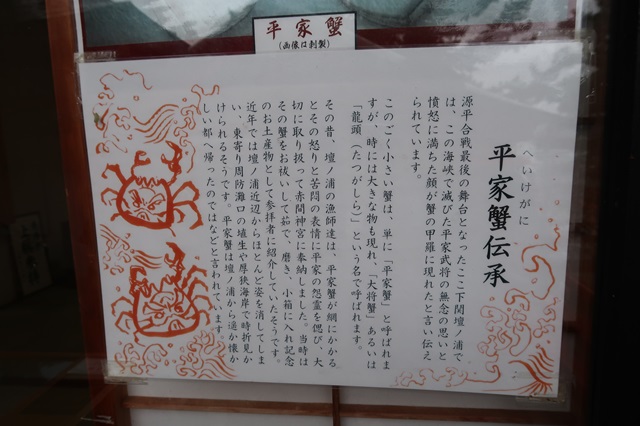 平家蟹
(画像は剥製)
へいけがに
平家蟹伝承
源平合戦最後の舞台となったここ下関壇ノ浦で
は、この海峡で滅びた平家武将の無念の思いと
憤怒に満ちた顔が蟹の甲羅に現れたと言い伝え
られています。
このごく小さい蟹は、単に「平家蟹」と呼ばれま
すが、時には大きな物も現れ、「大将蟹」あるいは
「龍頭(たつがしら)」という名で呼ばれます。
その昔、壇ノ浦の漁師達は、平家蟹が網にかかる
とその怒りと苦悶の表情に平家の怨霊を偲び、大
切に取り扱って赤間神宮に奉納しました。当時は
その蟹をお祓いして茹で、磨き、小箱に入れ記念
のお土産物として参拝者に紹介していたそうです。
近年では壇ノ浦近辺からほとんど姿を消してしま
い、東寄り周防灘口の埴生や厚狭海岸で時折見か
けられるそうです。平家蟹は壇ノ浦から遥か懐か
しい都へ帰ったのではなどと言われています。